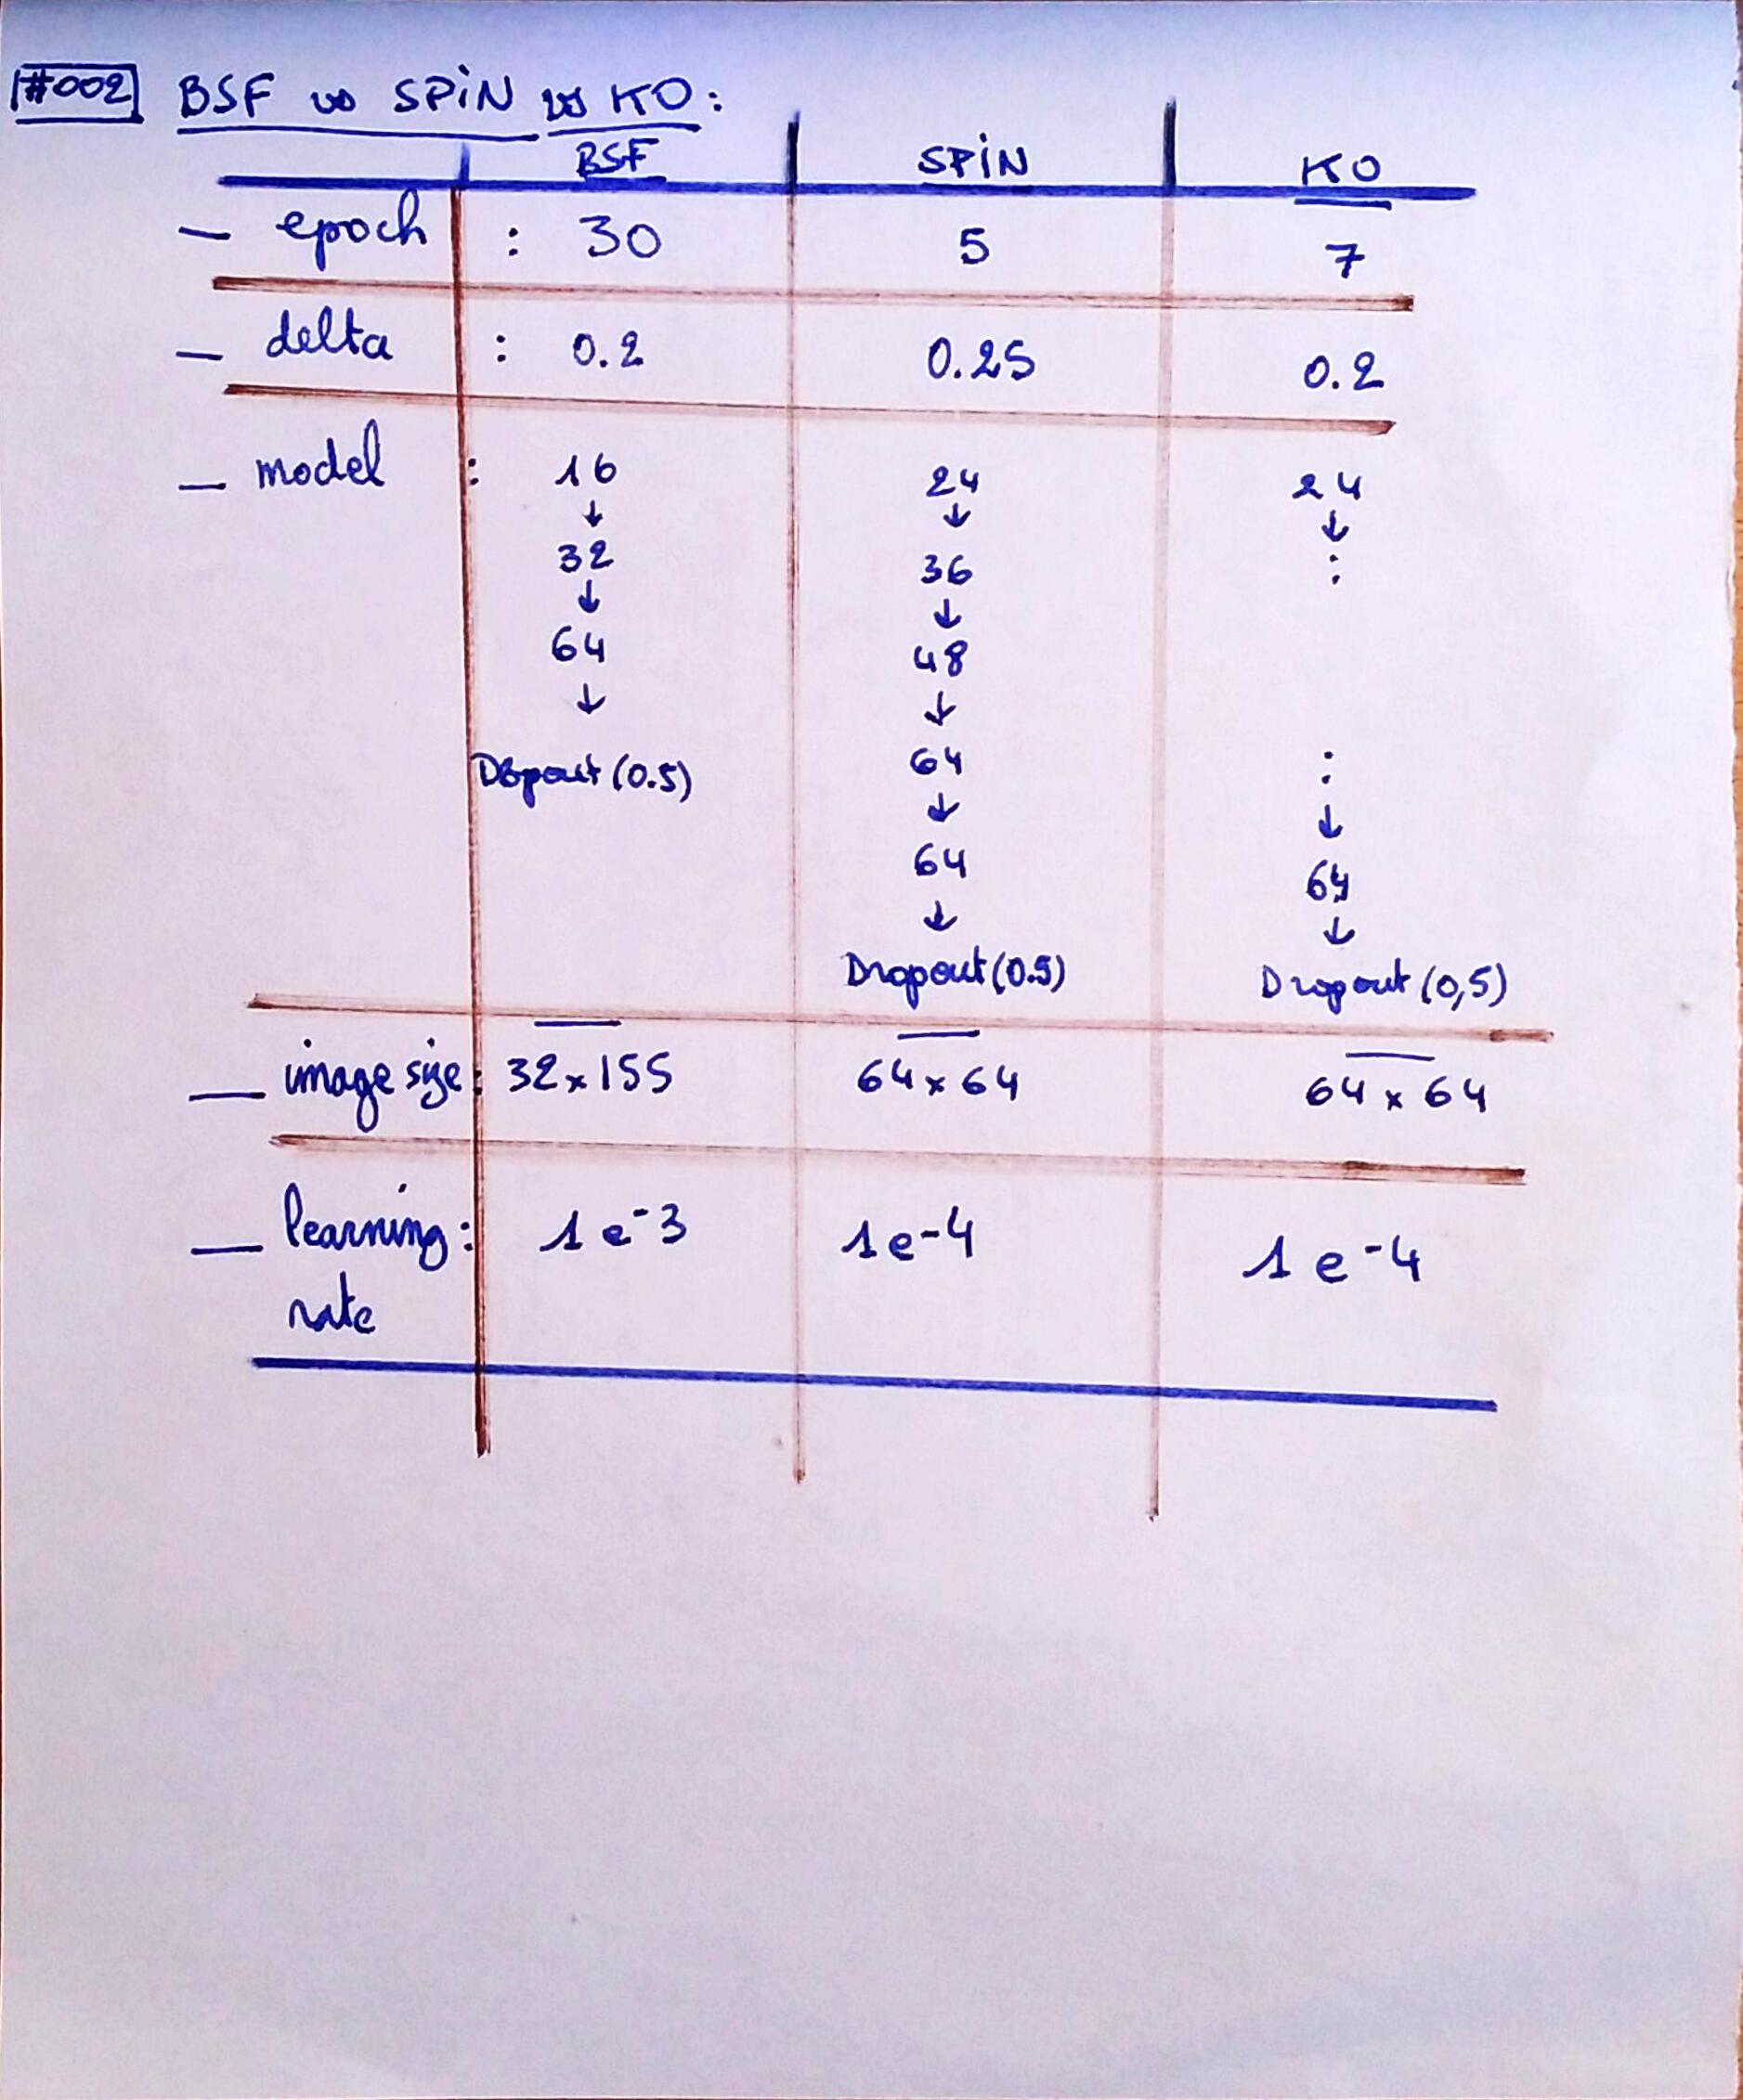 #002 BSF vs SPiN vs KO:
BSF SPiN KO
— epoch : 30 5 7
— delta : 0.2 0.25 0.2
— model : 16 24 24
↓ ↓ ↓
32 36 :
↓ ↓
64 48
↓ ↓
Dropout (0.5) 64 :
↓ ↓
64 64
↓ ↓
Dropout (0.5) Dropout (0,5)
— image size: 32x155 64x64 64x64
— learning: 1e-3 1e-4 1e-4
rate